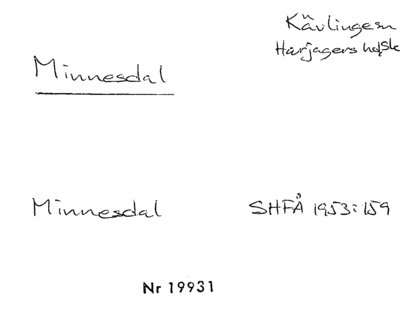 Kävlinge sn
Harjagers hd, Sk
Minnesdal
Minnesdal SHFÅ 1953:159
Nr 19931